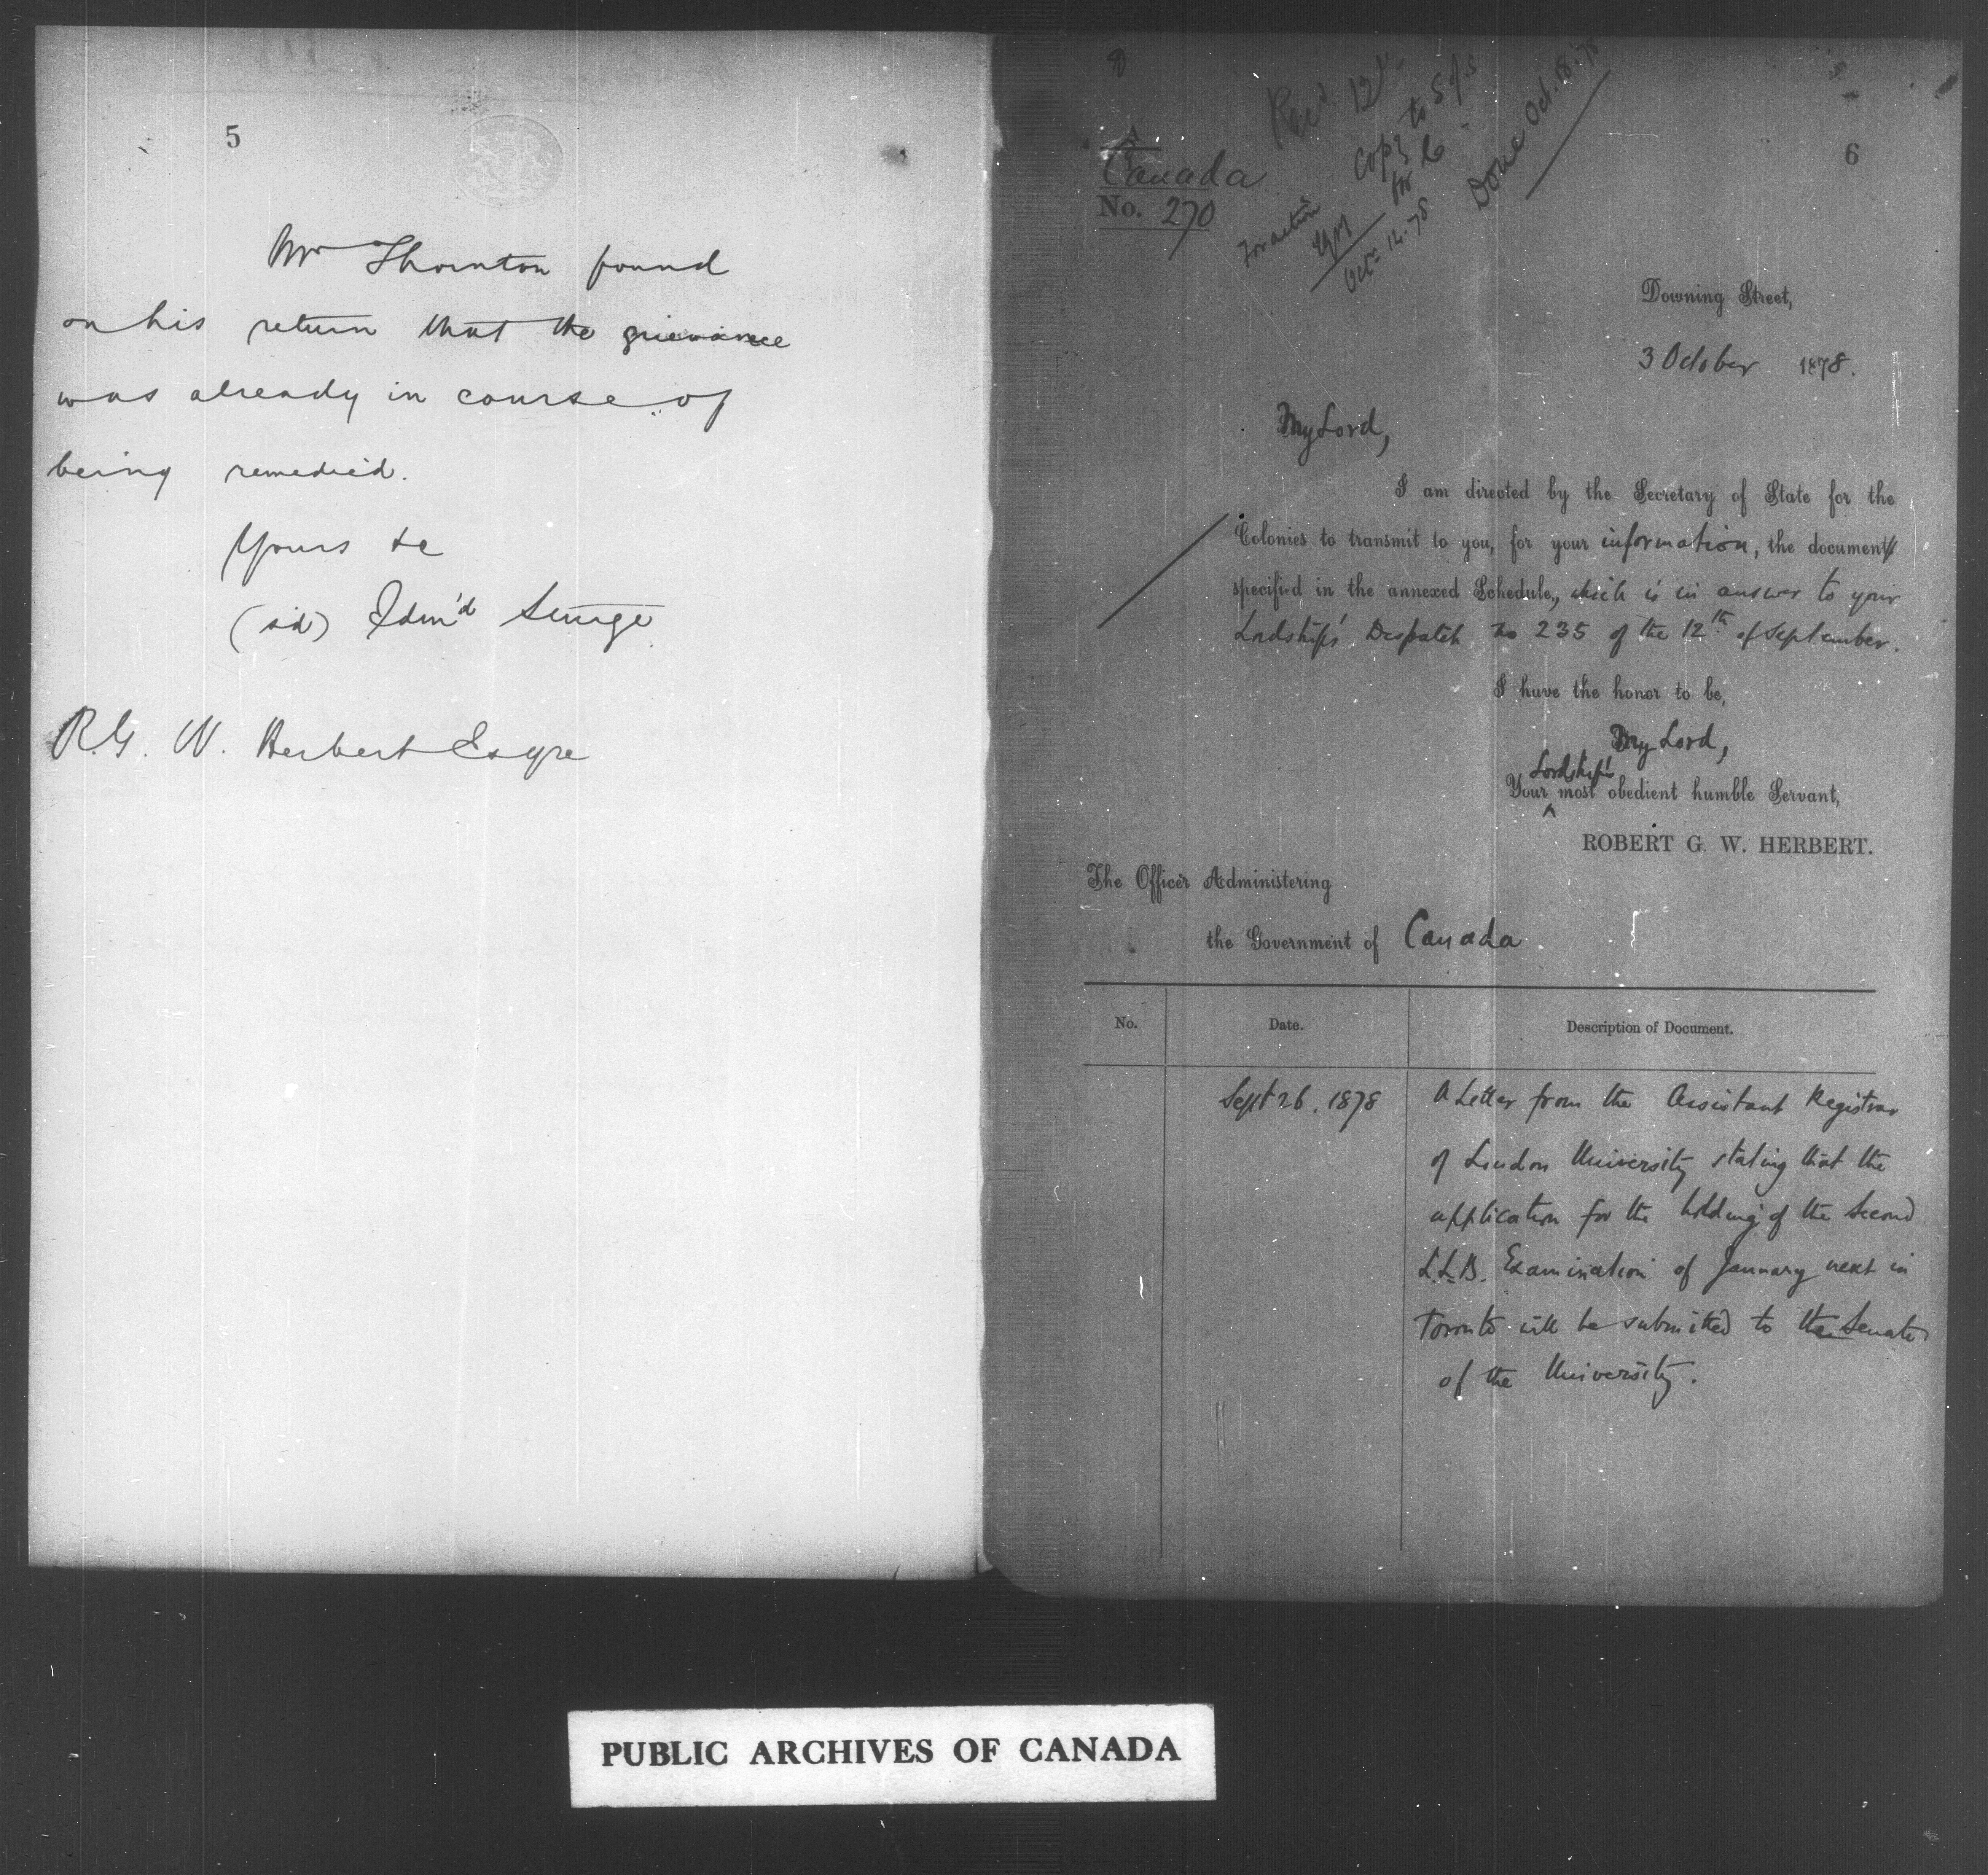 5
Mr Thornton found
on his return that the grievance
was already in course of
being remedied.
Yours &c
(sd) Edmd Sturge
R. G. W. Herbert Esqre
6
Canada
No. 270
Recd. 12
Copy to S of S
for
Done Oct. 18. 78
For action
Oct 12. 78
Downing Street,
3 October 1878.
My Lord,
I am directed by the Secretary of State for the
Colonies to transmit to you, for your information, the document
specified in the annexed Schedule, which is in answer to your
Lordship's Despatch No 235 of the 12th of September.
I have the honor to be,
My Lord,
Lordship's
Your most obedient humble Servant,
ROBERT G. W. HERBERT.
The Officer Administering
the Government of Canada
No. Date. Description of Document.
Sept 26. 1878 A Letter from the Assistant Registrar
of London University stating that the
application for the holding of the Second
L.L.B. Examination of January next in
Toronto will be submitted to the Senate
of the University.
PUBLIC ARCHIVES OF CANADA